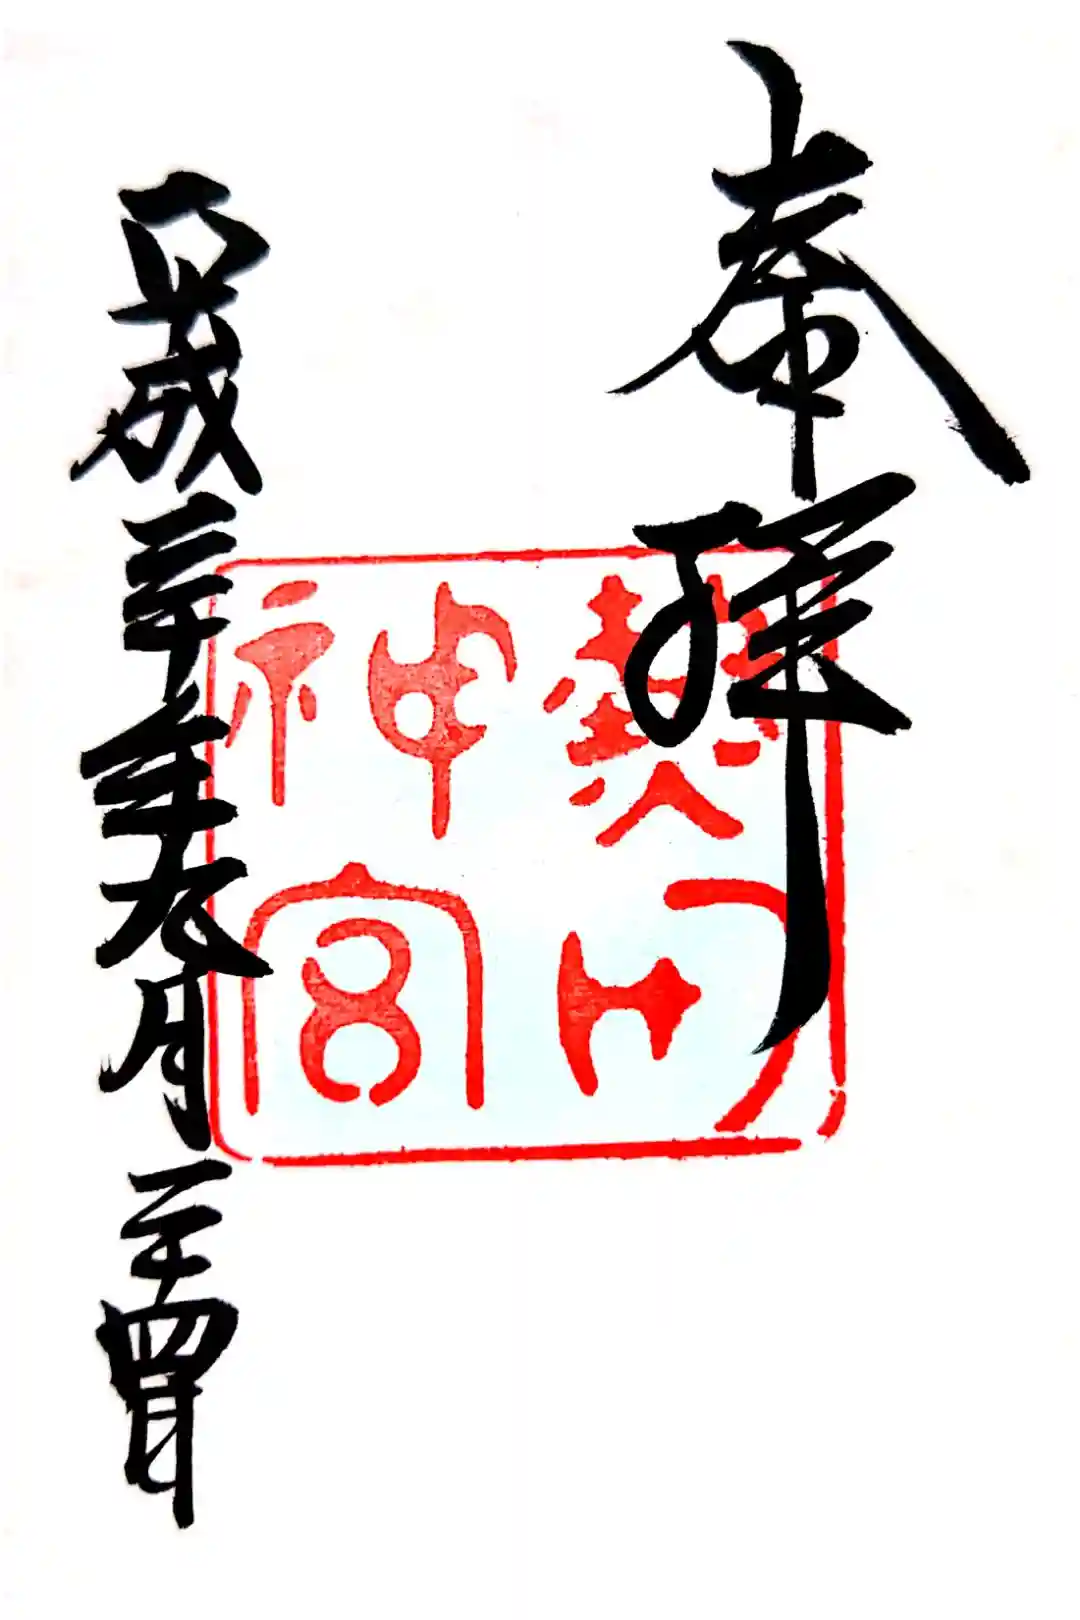 奉拝
熱田
神宮
平成三十年九月二十四日